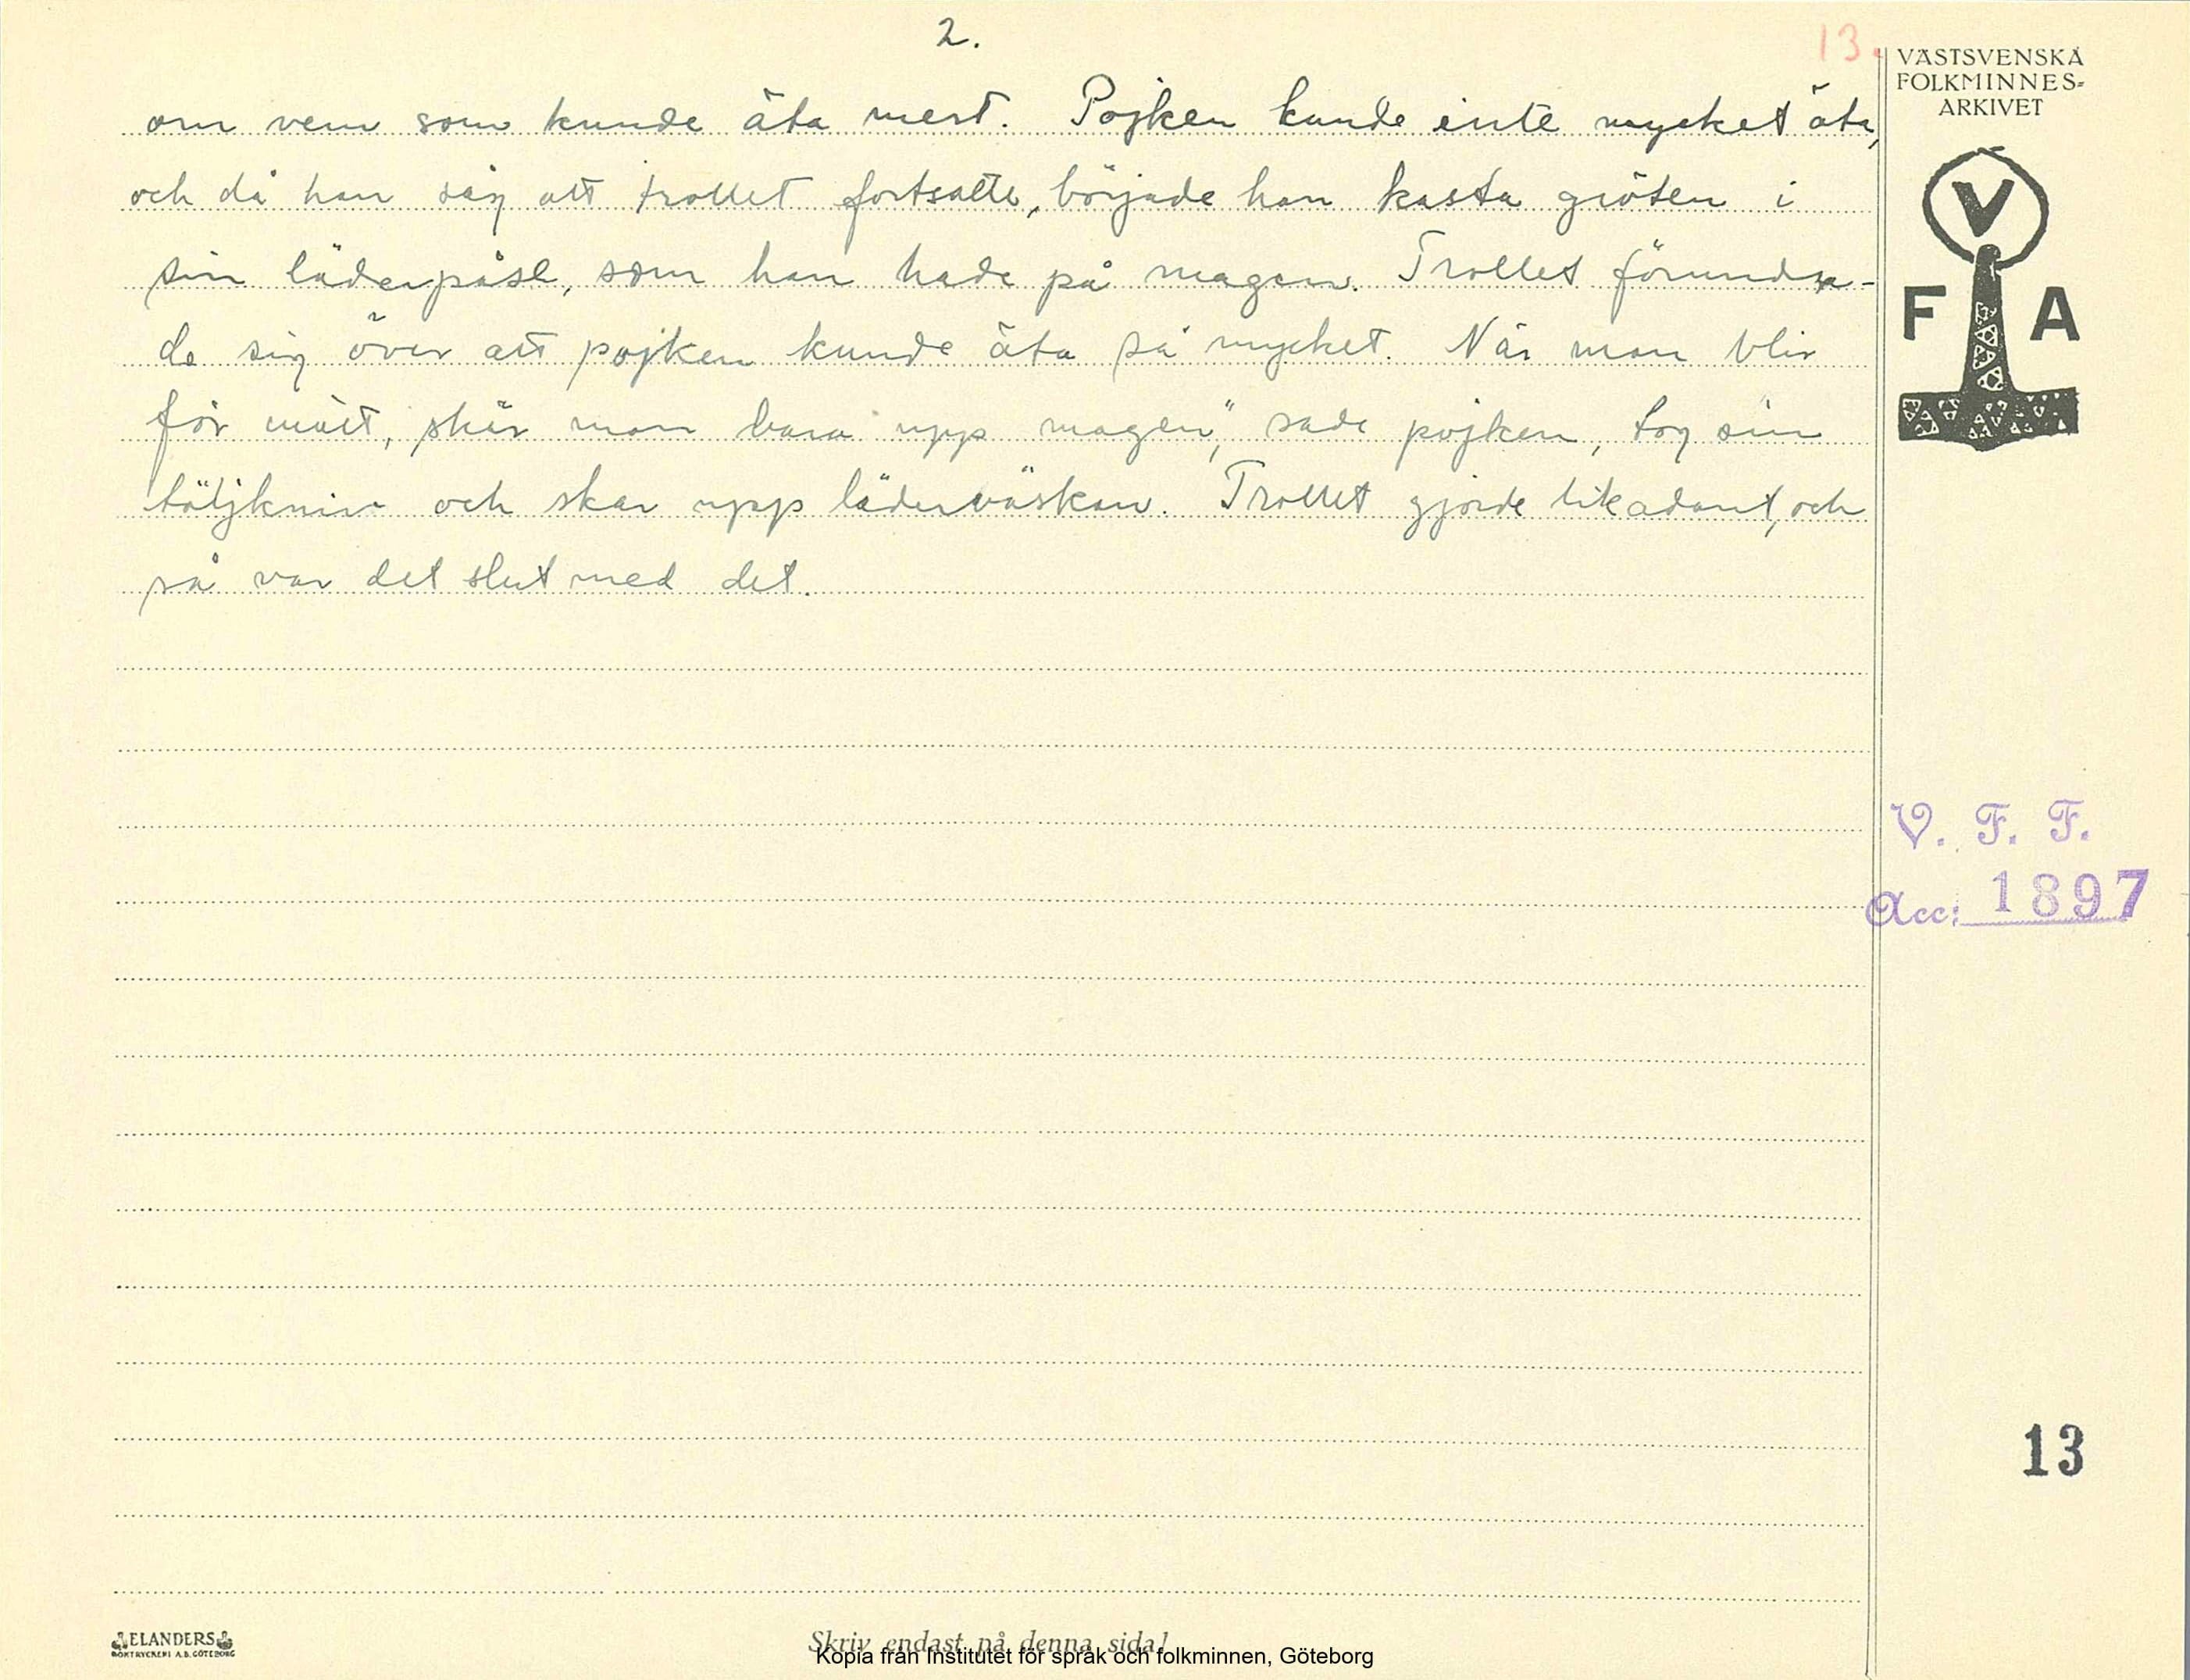 2.
13.
VÄSTSVENSKA
FOLKMINNES-
ARKIVET
V
F A
om vem som kunde äta mest. Pojken kunde inte mycket äta,
och då han såg att trollet fortsatte, började han kasta gröten i
sin läderpåse, som han hade på magen. Trollet förundra-
de sig över att pojken kunde äta så mycket. När man blir
för mätt, skär man bara upp magen", sade pojken, tog sin
täljkniv och skar upp läderväskan. Trollet gjorde likadant, och
så var det slut med det.
V. F. F.
Acc: 1897
13
ELANDERS
BOKTRYCKERI A.B. GÖTEBORG
Skriv endast på denna sida!
Kopia från Institutet för språk och folkminnen, Göteborg